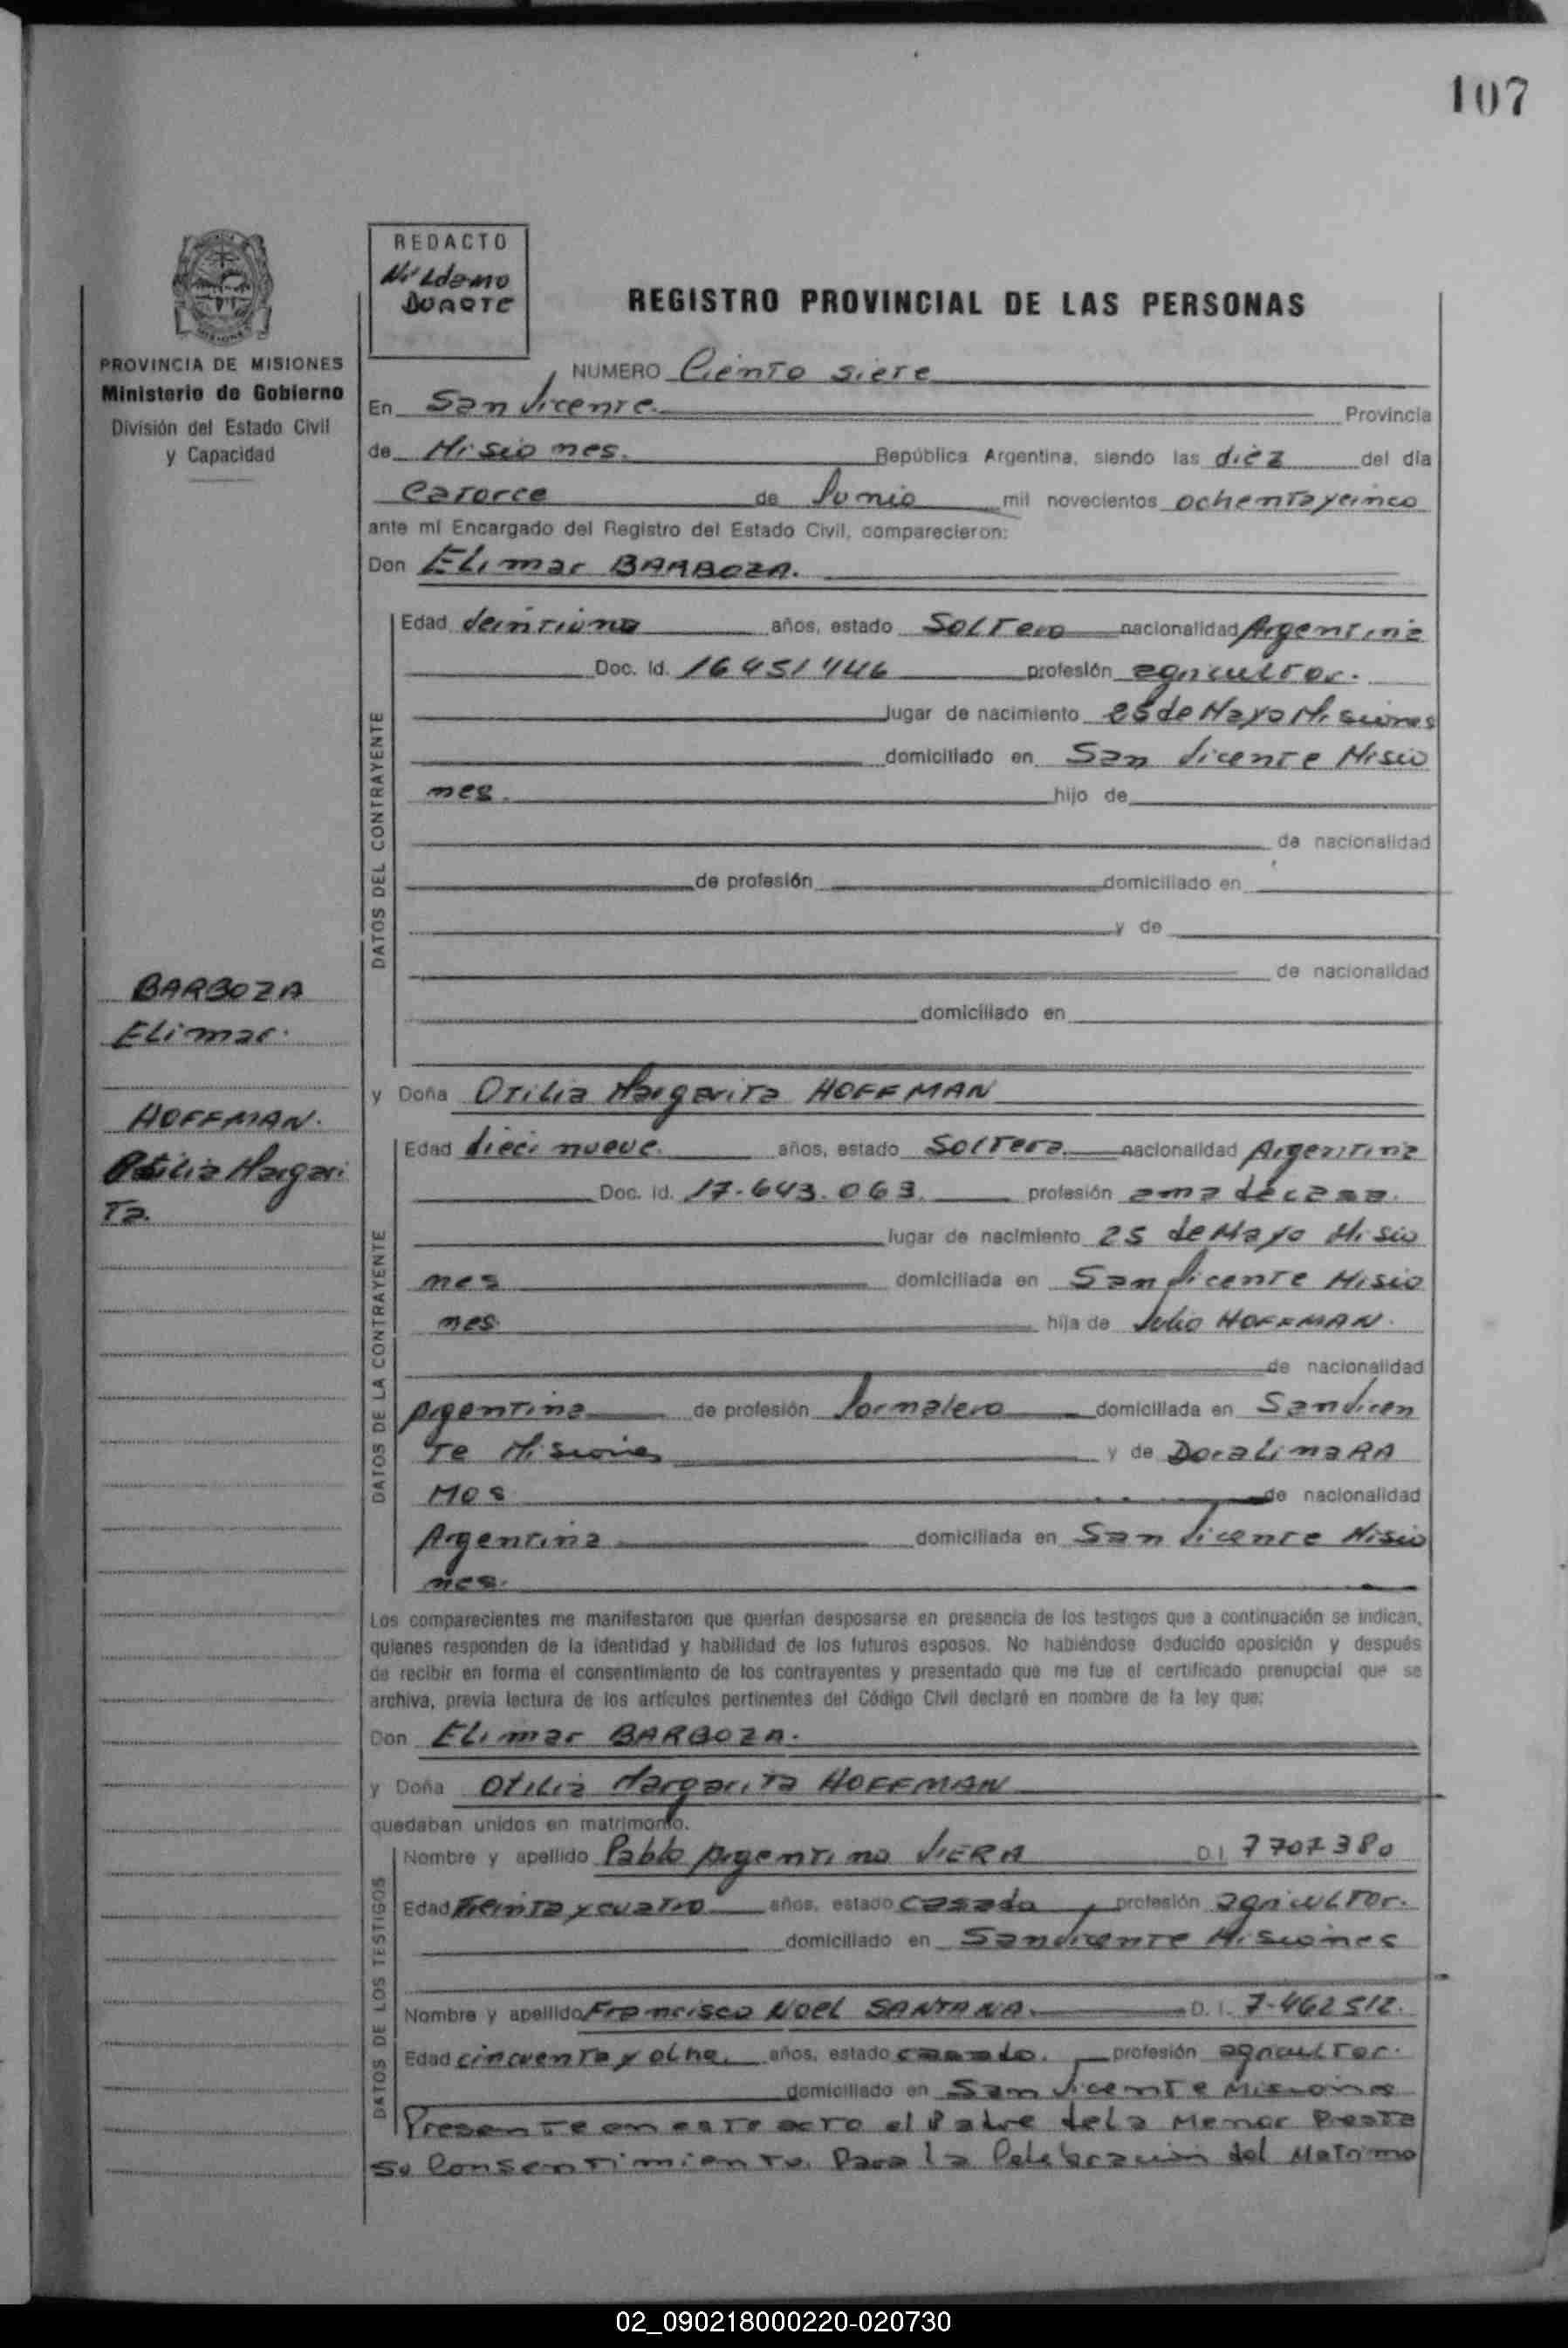 107
REDACTO
DUARTE
REGISTRO PROVINCIAL DE LAS PERSONAS
PROVINCIA DE MISIONES
Ministerio de Gobierno
División del Estado Civil
y Capacidad
NUMERO Ciento siete
En San Vicente. Provincia
de Misiones. República Argentina, siendo las diez del día
Catorce de Junio mil novecientos ochentaycinco
ante mí Encargado del Registro del Estado Civil, comparecieron:
Don Elimar BARBOZA.
DATOS DEL CONTRAYENTE
Edad veintiuno años, estado Soltero nacionalidad Argentina
Doc. Id. 16451446 profesión agricultor.
lugar de nacimiento 25 de Mayo Misiones
domiciliado en San Vicente Misio
nes. hijo de
de nacionalidad
de profesión domiciliado en
y de
de nacionalidad
domiciliado en
BARBOZA
Elimar.
HOFFMAN.
Otilia Margari
Ta.
y Doña Otilia Margarita HOFFMAN
DATOS DE LA CONTRAYENTE
Edad dieci nueve. años, estado Soltera. nacionalidad Argentina
Doc. Id. 17.643.063. profesión ama de casa.
lugar de nacimiento 25 de Mayo Misio
nes domiciliada en San Vicente Misio
nes hija de Julio HOFFMAN.
de nacionalidad
Argentina de profesión Jornalero domiciliada en San Vicen
te Misiones y de Doralina RA
MOS de nacionalidad
Argentina domiciliada en San Vicente Misio
nes.
Los comparecientes me manifestaron que querían desposarse en presencia de los testigos que a continuación se indican,
quienes responden de la identidad y habilidad de los futuros esposos. No habiéndose deducido oposición y después
de recibir en forma el consentimiento de los contrayentes y presentado que me fue el certificado prenupcial que se
archiva, previa lectura de los artículos pertinentes del Código Civil declaré en nombre de la ley que:
Don Elimar BARBOZA.
y Doña Otilia Margarita HOFFMAN
quedaban unidos en matrimonio.
DATOS DE LOS TESTIGOS
Nombre y apellido Pablo Argentino VIERA D.I. 7707380
Edad Treinta y cuatro años, estado casado, profesión agricultor.
domiciliado en San Vicente Misiones
Nombre y apellido Francisco Noel SANTANA. D.I. 7-462512.
Edad cincuenta y ocho. años, estado casado. profesión agricultor.
domiciliado en San Vicente Misiones
Presente en este acto el Padre dela Menor Presta
su Consentimiento. Para la Celebración del Matrimo
02_090218000220-020730